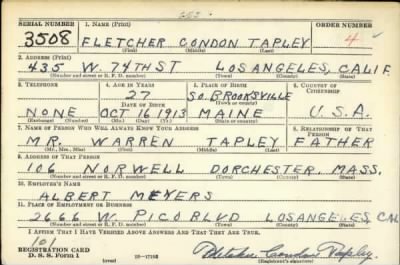 SERIAL NUMBER 1. NAME (Print) ORDER NUMBER
3508 FLETCHER CONDON TAPLEY 4
(First) (Middle) (Last)
2. ADDRESS (Print)
435 W. 74TH ST LOS ANGELES, CALIF.
(Number and street or R. F. D. number) (Town) (County) (State)
3. TELEPHONE 4. AGE IN YEARS 5. PLACE OF BIRTH 6. COUNTRY OF CITIZENSHIP
27 SO. BROOKSVILLE
DATE OF BIRTH (Town or county)
NONE OCT 16 1913 MAINE U.S.A.
(Exchange) (Number) (Mo.) (Day) (Yr.) (State or country)
7. NAME OF PERSON WHO WILL ALWAYS KNOW YOUR ADDRESS 8. RELATIONSHIP OF THAT PERSON
MR WARREN TAPLEY FATHER
(Mr., Mrs., Miss) (First) (Middle) (Last)
9. ADDRESS OF THAT PERSON
106 NORWELL DORCHESTER, MASS.
(Number and street or R. F. D. number) (Town) (County) (State)
10. EMPLOYER'S NAME
ALBERT MEYERS
11. PLACE OF EMPLOYMENT OR BUSINESS
2666 W. PICO BLVD LOS ANGELES, CAL
(Number and street or R. F. D. number) (Town) (County) (State)
I AFFIRM THAT I HAVE VERIFIED ABOVE ANSWERS AND THAT THEY ARE TRUE.
101
REGISTRATION CARD Fletcher Condon Tapley
D. S. S. Form 1 (over) (Registrant's signature)